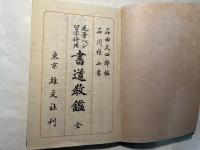 石田文四郎編
石川雅山書
毛筆ペン
習字併用
書道教鑑 全
東京 雄文社刊